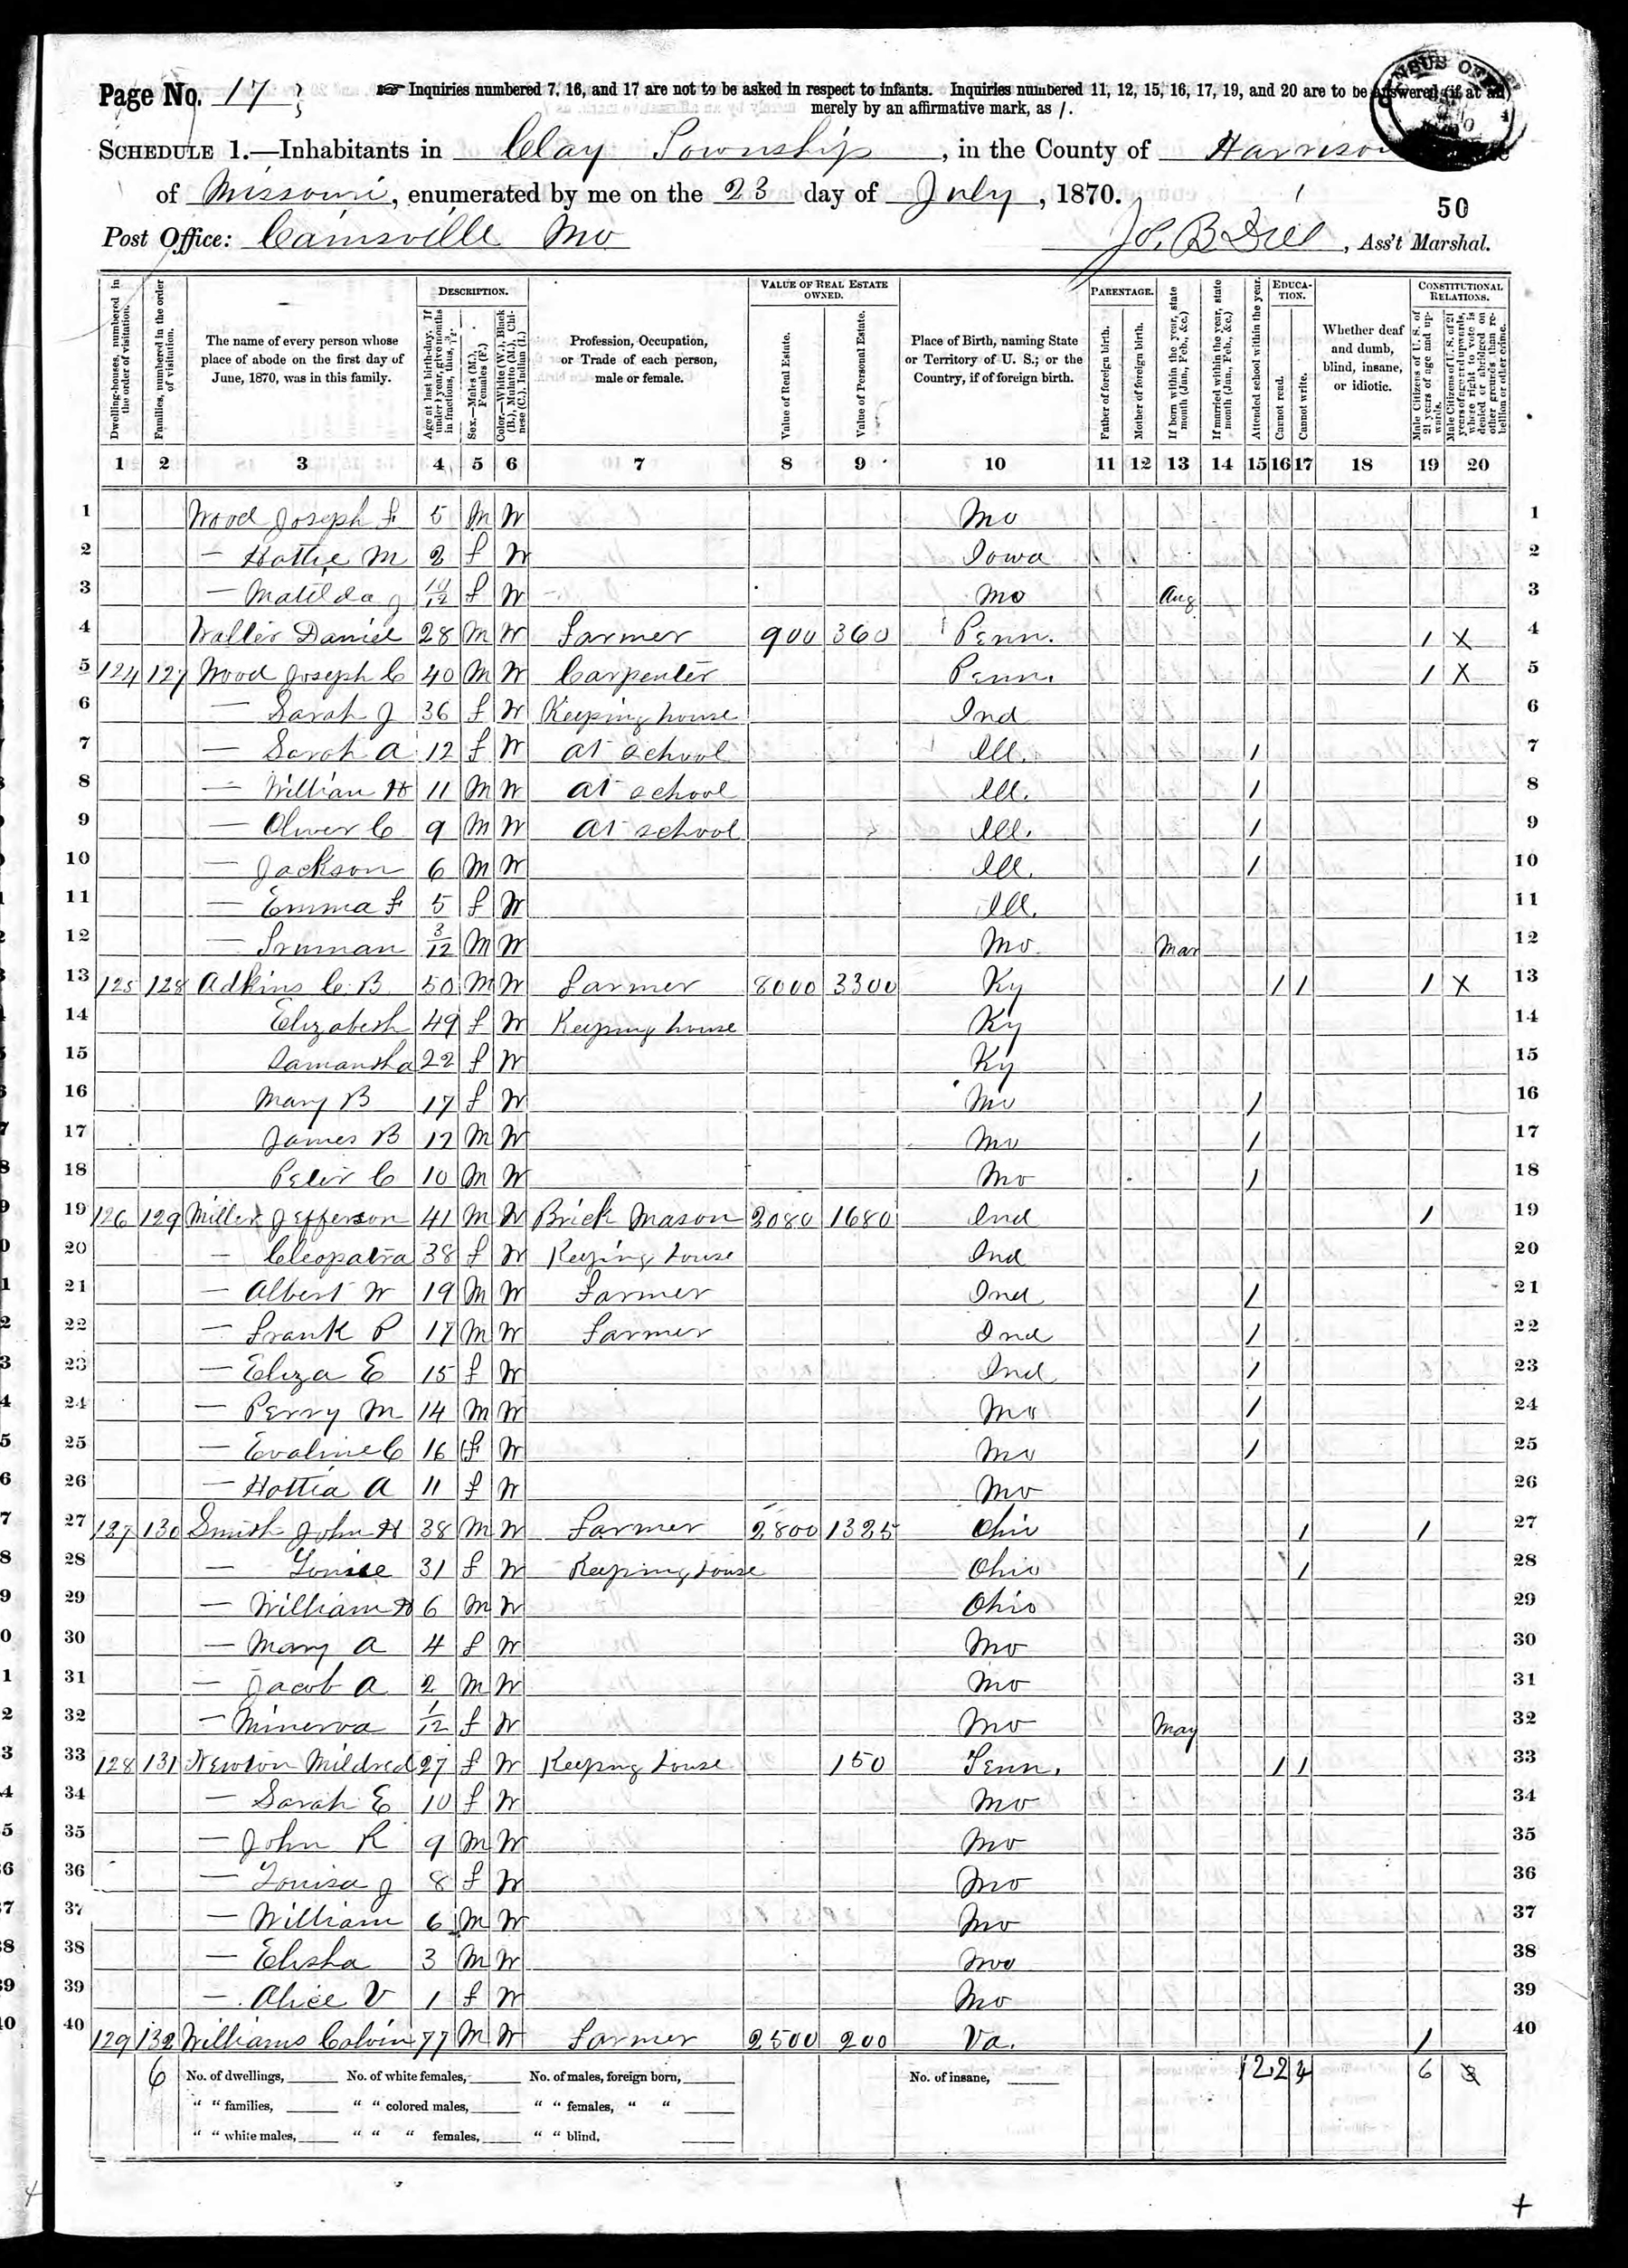 Page No. 17
☞ Inquiries numbered 7, 16, and 17 are not to be asked in respect to infants. Inquiries numbered 11, 12, 15, 16, 17, 19, and 20 are to be answered (if at all)
merely by an affirmative mark, as /.
SCHEDULE 1.—Inhabitants in Clay Township, in the County of Harrison
of Missouri, enumerated by me on the 23 day of July, 1870.
50
Post Office: Cainsville Mo
Jos. B Dill, Ass't Marshal.
Dwelling-houses, numbered in the order of visitation.
Families, numbered in the order of visitation.
The name of every person whose place of abode on the first day of June, 1870, was in this family.
DESCRIPTION.
Age at last birth-day. If under 1 year, give months in fractions, thus, 3/12.
Sex.—Males (M.), Females (F.)
Color.—White (W.), Black (B.), Mulatto (M.), Chinese (C.), Indian (I.)
Profession, Occupation, or Trade of each person, male or female.
VALUE OF REAL ESTATE OWNED.
Value of Real Estate.
Value of Personal Estate.
Place of Birth, naming State or Territory of U. S.; or the Country, if of foreign birth.
PARENTAGE.
Father of foreign birth.
Mother of foreign birth.
If born within the year, state month (Jan., Feb., &c.)
If married within the year, state month (Jan., Feb., &c.)
Attended school within the year.
EDUCATION.
Cannot read.
Cannot write.
Whether deaf and dumb, blind, insane, or idiotic.
CONSTITUTIONAL RELATIONS.
Male Citizens of U. S. of 21 years of age and upwards.
Male Citizens of U. S. of 21 years of age and upwards, where right to vote is denied or abridged on other grounds than rebellion or other crime.
1 2 3 4 5 6 7 8 9 10 11 12 13 14 15 16 17 18 19 20
1 Wood Joseph F 5 M W Mo 1
2 — Hattie M 2 f W Iowa 2
3 — Matilda J 10/12 f W Mo Aug 3
4 Walter Daniel 28 M W Farmer 900 360 Penn. 1 X 4
5 124 127 Wood Joseph C 40 M W Carpenter Penn. 1 X 5
6 — Sarah J 36 f W Keeping house Ind 6
7 — Sarah A 12 f W at school Ill. 1 7
8 — William H 11 M W at school Ill. 1 8
9 — Oliver C 9 M W at school Ill. 1 9
10 — Jackson 6 M W Ill. 1 10
11 — Emma F 5 f W Ill. 11
12 — Truman 3/12 M W Mo Mar 12
13 125 128 Adkins C. B. 50 M W Farmer 8000 3300 Ky 1 1 1 X 13
14 Elizabeth 49 f W Keeping house Ky 14
15 Samantha 22 f W Ky 15
16 Mary B 17 f W Mo 1 16
17 James B 12 M W Mo 1 17
18 Peter C 10 M W Mo 1 18
19 126 129 Miller Jefferson 41 M W Brick Mason 2080 1680 Ind 1 19
20 — Cleopatra 38 f W Keeping house Ind 20
21 — Albert W 19 M W Farmer Ind 1 21
22 — Frank P 17 M W Farmer Ind 1 22
23 — Eliza E 15 f W Ind 1 23
24 — Perry M 14 M W Mo 1 24
25 — Evaline C 16 f W Mo 1 25
26 — Hattia A 11 f W Mo 26
27 127 130 Smith John H 38 M W Farmer 2800 1325 Ohio 1 1 27
28 — Louise 31 f W Keeping house Ohio 1 28
29 — William H 6 M W Ohio 29
30 — Mary A 4 f W Mo 30
31 — Jacob A 2 M W Mo 31
32 — Minerva 1/12 f W Mo May 32
33 128 131 Newton Mildred 27 f W Keeping house 150 Tenn. 1 1 33
34 — Sarah E 10 f W Mo 34
35 — John R 9 M W Mo 35
36 — Louisa J 8 f W Mo 36
37 — William 6 M W Mo 37
38 — Elisha 3 M W Mo 38
39 — Alice V 1 f W Mo 39
40 129 132 Williams Calvin 77 M W Farmer 2500 200 Va. 1 40
6 No. of dwellings, No. of white females, No. of males, foreign born, No. of insane, 12 2 4 6 3
" " families, " " colored males, " " females, " "
" " white males, " " " females, " " blind,